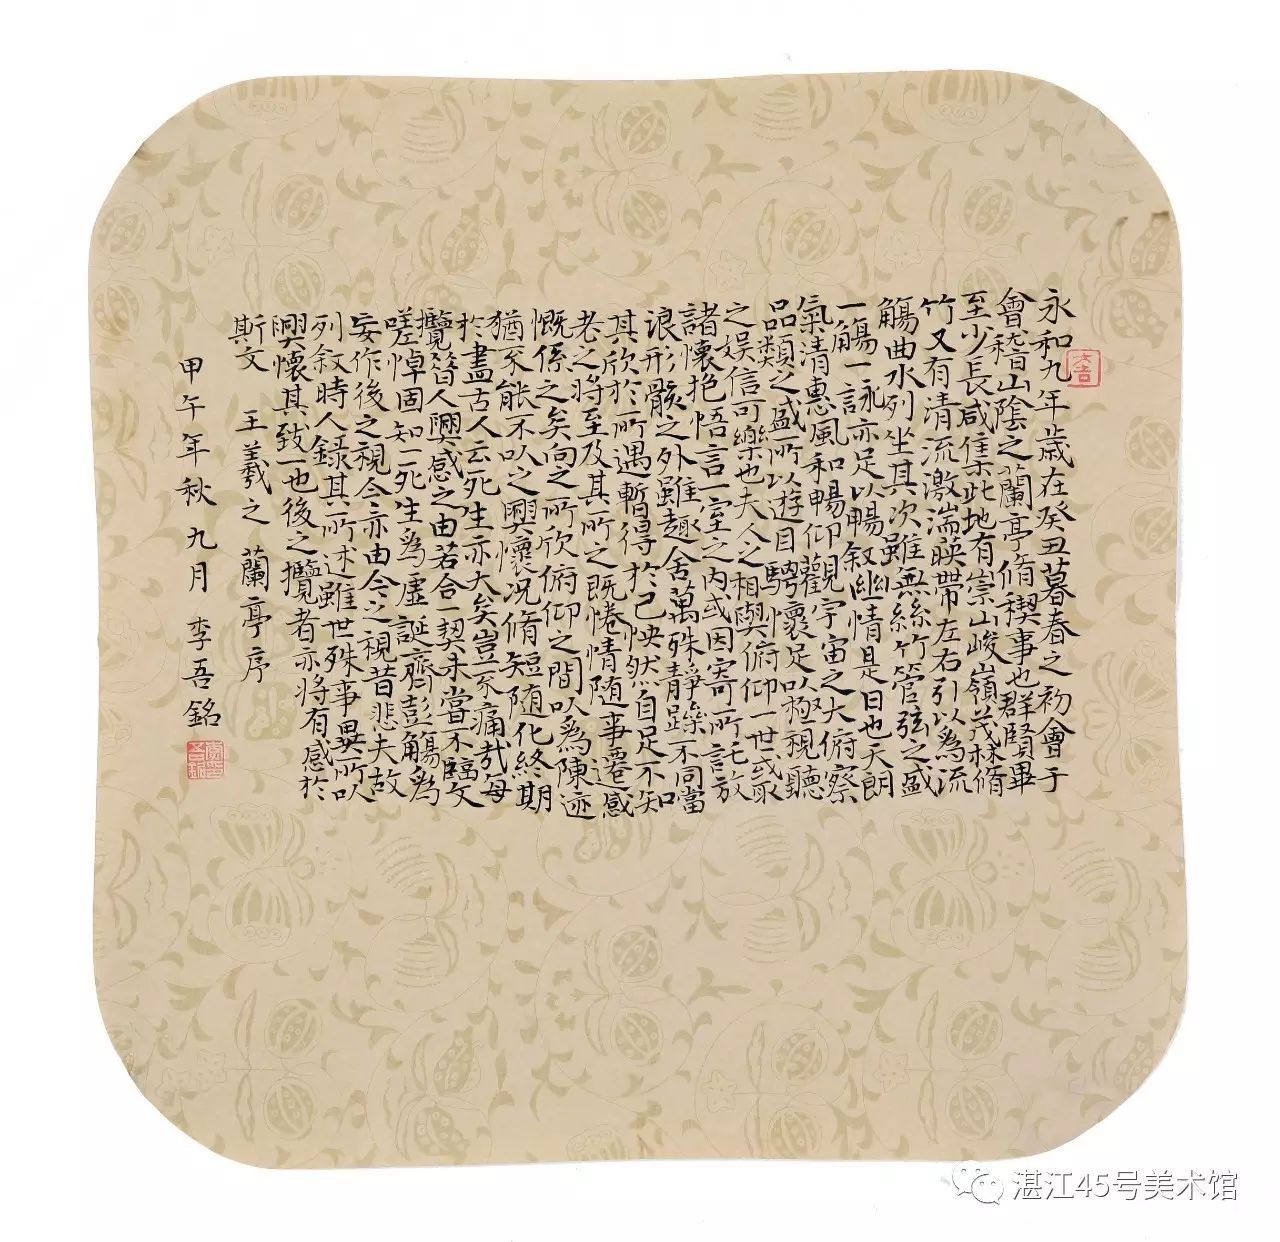 永和九年歲在癸丑暮春之初會于
會稽山陰之蘭亭脩稧事也群賢畢
至少長咸集此地有崇山峻嶺茂林脩
竹又有清流激湍暎帶左右引以為流
觴曲水列坐其次雖無絲竹管弦之盛
一觴一詠亦足以暢叙幽情是日也天朗
氣清惠風和暢仰觀宇宙之大俯察
品類之盛所以遊目騁懷足以極視聽
之娱信可樂也夫人之相與俯仰一世或取
諸懷抱悟言一室之內或因寄所託放
浪形骸之外雖趣舍萬殊靜躁不同當
其欣於所遇暫得於己怏然自足不知
老之將至及其所之既惓情隨事遷感
慨係之矣向之所欣俯仰之間以為陳迹
猶不能不以之興懷况脩短隨化終期
於盡古人云死生亦大矣豈不痛哉每
攬昔人興感之由若合一契未嘗不臨文
嗟悼固知一死生為虛誕齊彭觴為
妄作後之視今亦由今之視昔悲夫故
列叙時人錄其所述雖世殊事異所以
興懷其致一也後之攬者亦將有感於
斯文 王羲之 蘭亭序
甲午年秋九月 李吾銘
李吾銘印
湛江45号美术馆